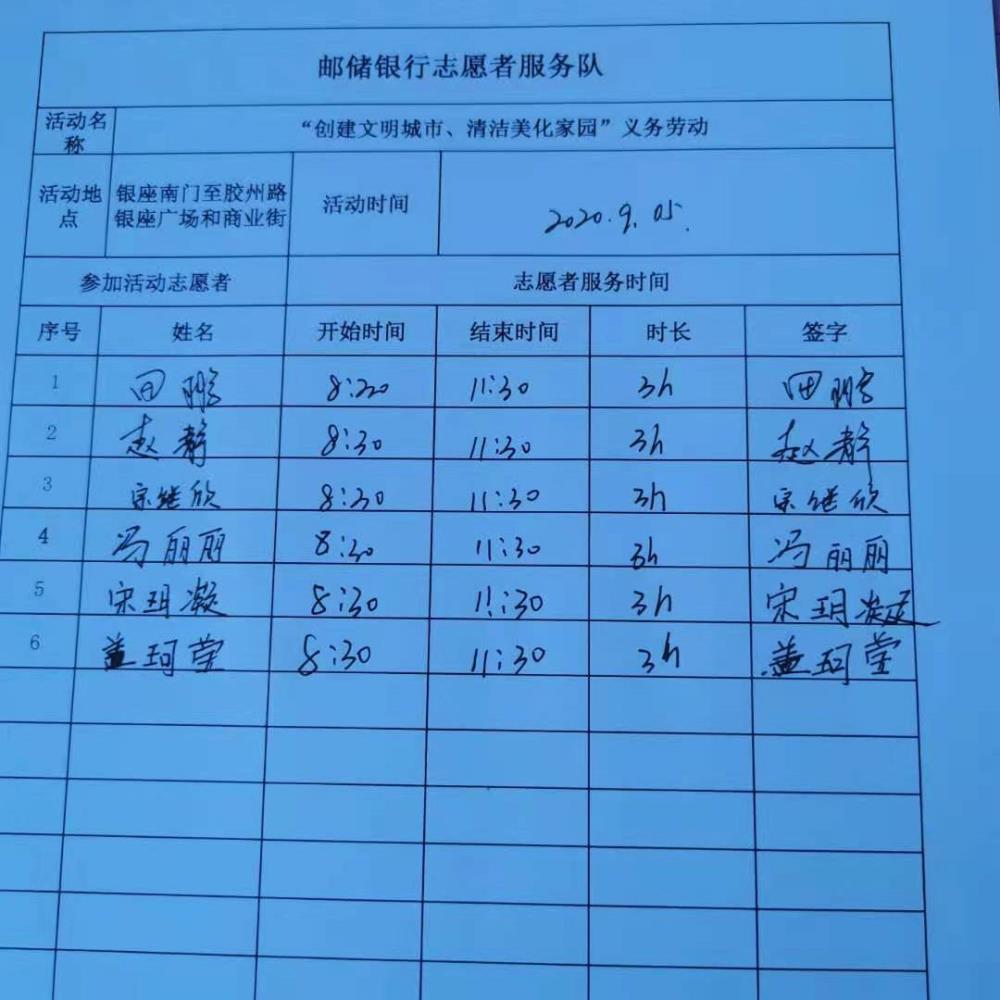 邮储银行志愿者服务队
活动名称 “创建文明城市、清洁美化家园”义务劳动
活动地点 银座南门至胶州路银座广场和商业街 活动时间 2020.9.05.
参加活动志愿者 志愿者服务时间
序号 姓名 开始时间 结束时间 时长 签字
1 田鹏 8:30 11:30 3h 田鹏
2 赵静 8:30 11:30 3h 赵静
3 宗继欣 8:30 11:30 3h 宗继欣
4 冯丽丽 8:30 11:30 3h 冯丽丽
5 宋玥凝 8:30 11:30 3h 宋玥凝
6 盖珂莹 8:30 11:30 3h 盖珂莹